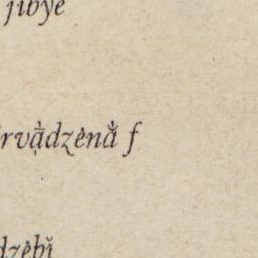 jibye
rvą̊̀dzėnå̀ f
dzėbĭ